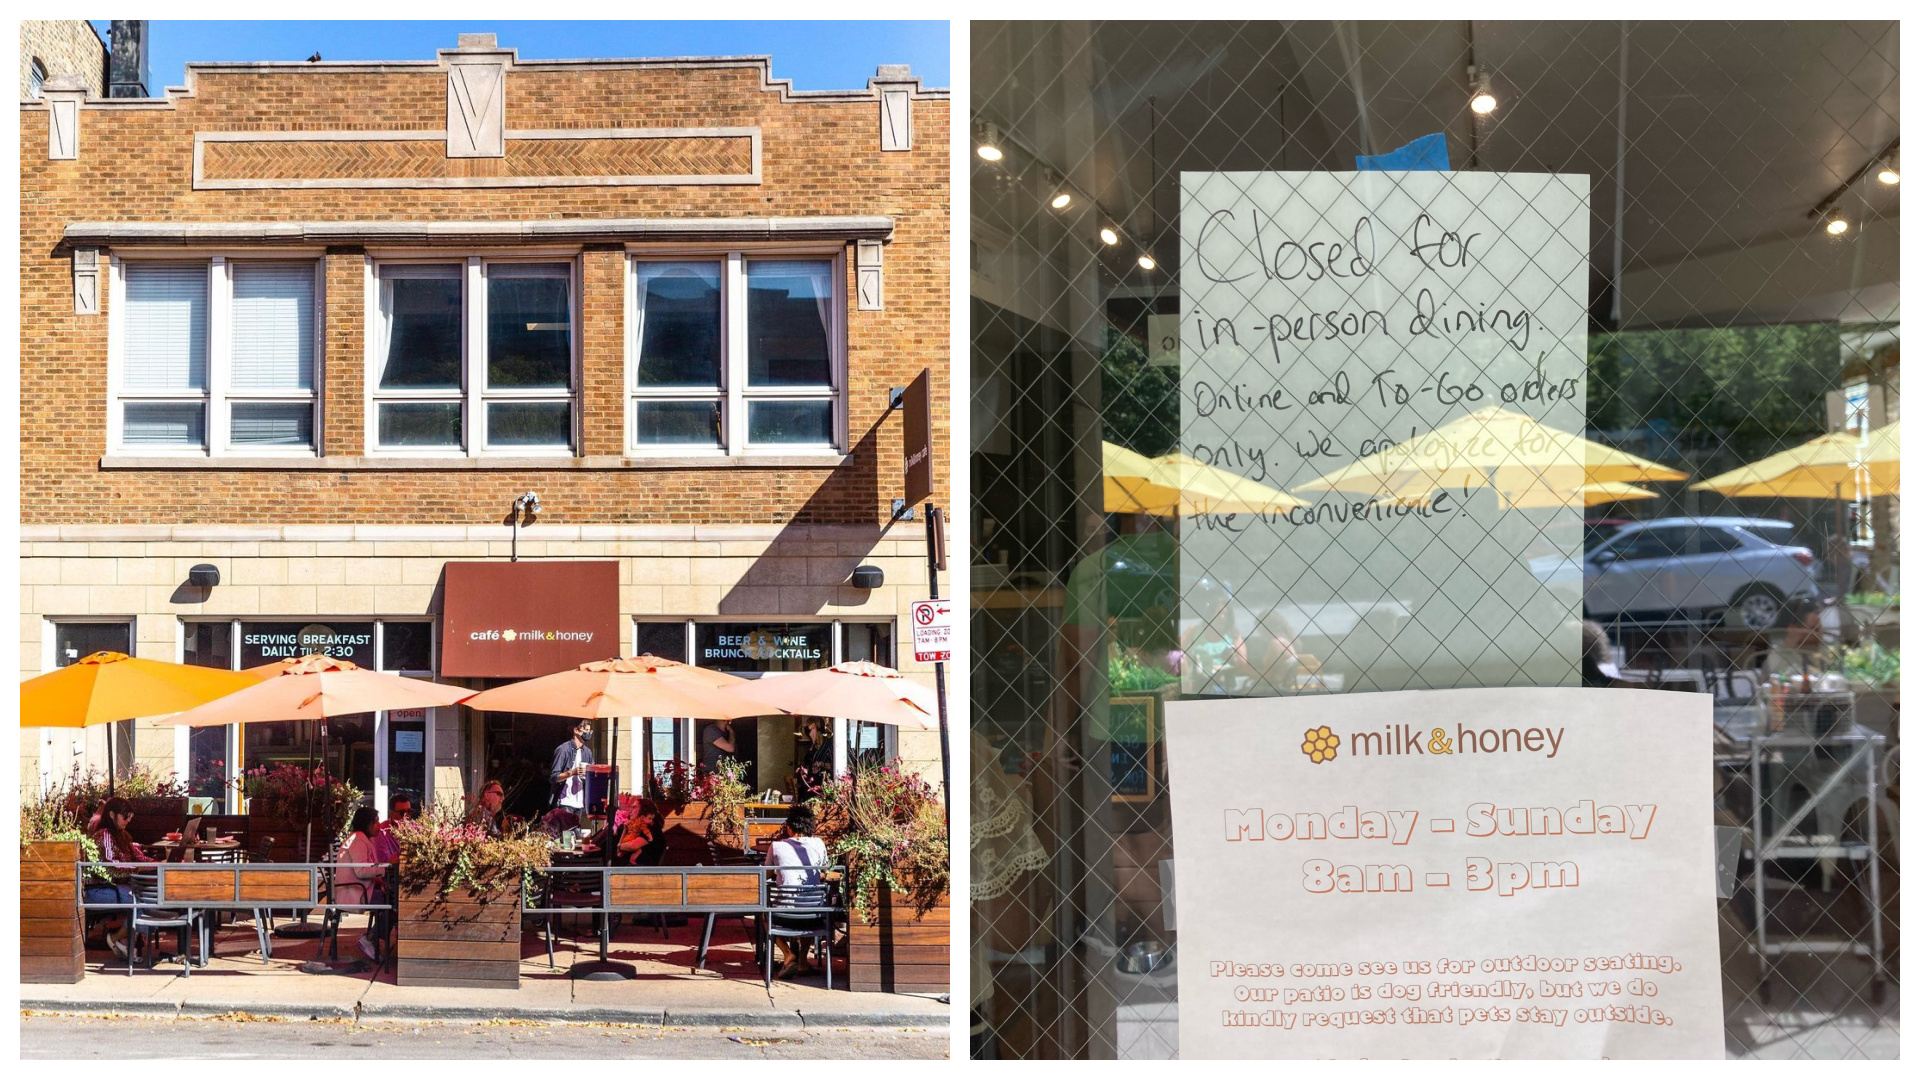 SERVING BREAKFAST
DAILY TILL 2:30
café milk&honey
BEER & WINE
BRUNCH COCKTAILS
open
LOADING
7AM-6PM
TOW
Closed for
in-person dining.
Online and To-Go orders
only. We apologize for
the inconvenience!
milk&honey
Monday - Sunday
8am - 3pm
Please come see us for outdoor seating.
Our patio is dog friendly, but we do
kindly request that pets stay outside.